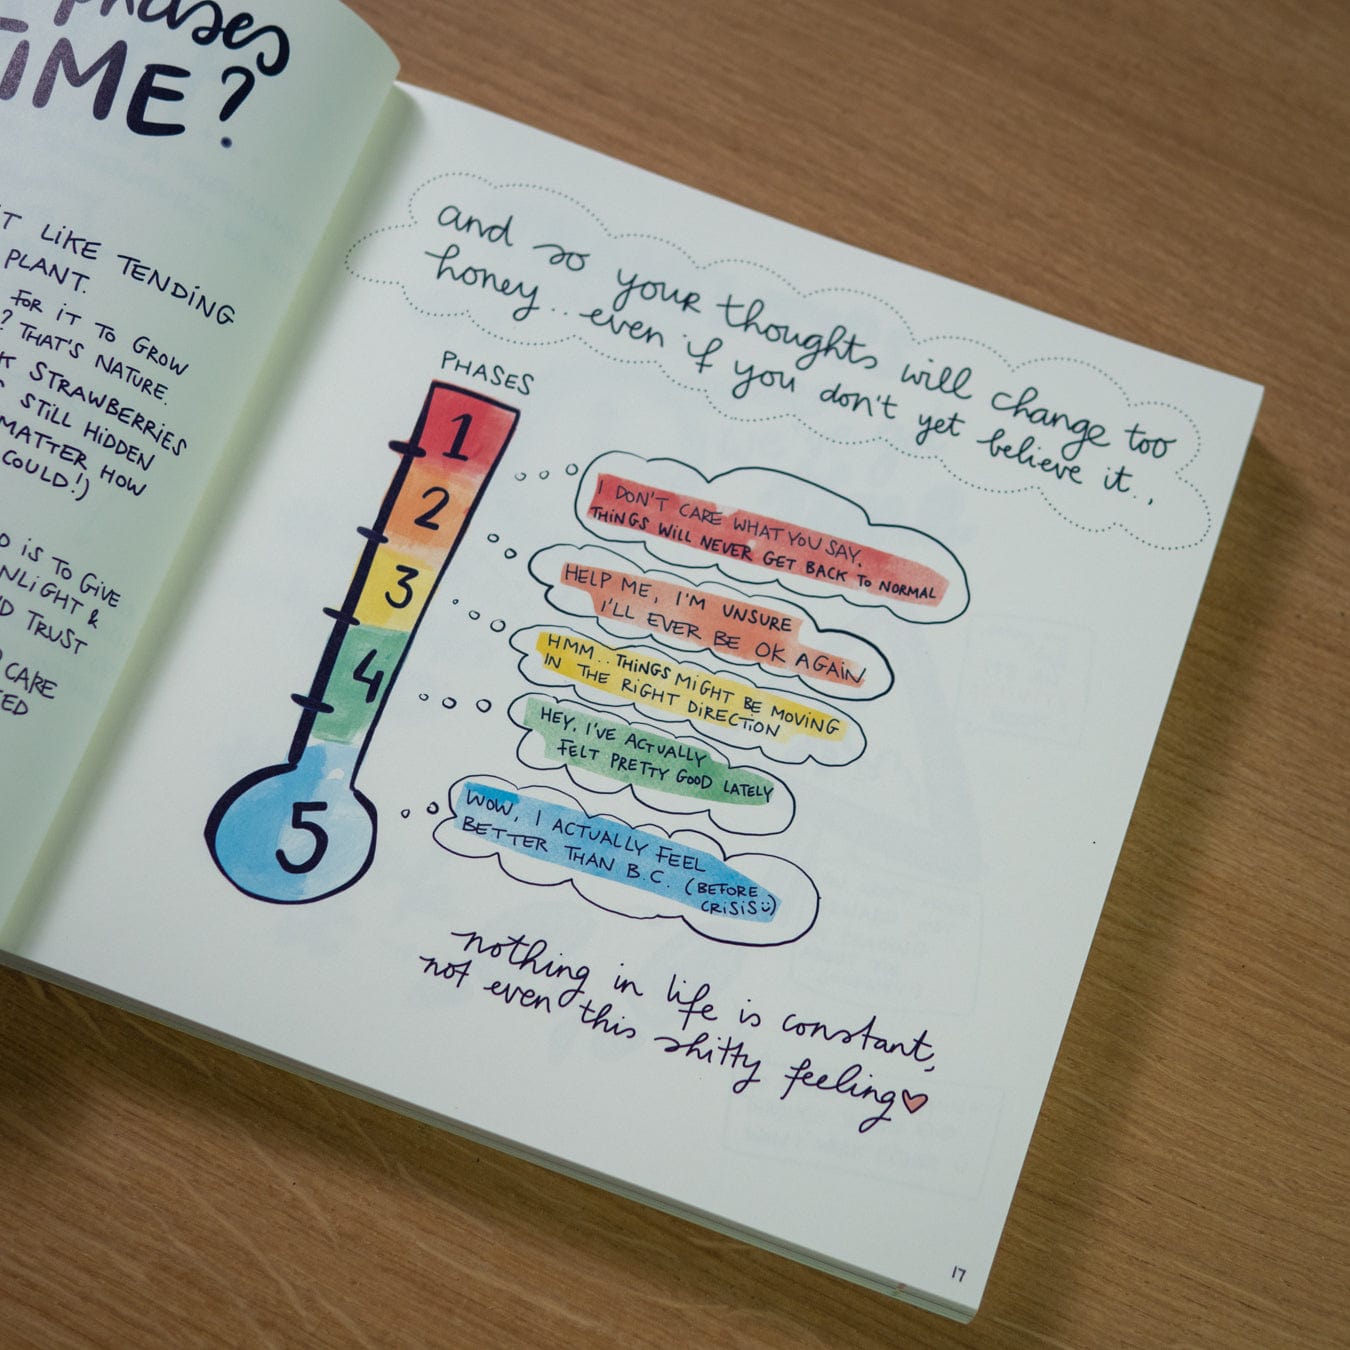 phases
TIME?
T LIKE TENDING
PLANT.
FOR IT TO GROW
? THAT'S NATURE.
STRAWBERRIES
STILL HIDDEN
MATTER HOW
COULD!)
IS TO GIVE
&
TRUST
CARE
and so your thoughts will change too
honey.. even if you don't yet believe it..
PHASES
1
2
3
4
5
I DON'T CARE WHAT YOU SAY.
THINGS WILL NEVER GET BACK TO NORMAL
HELP ME, I'M UNSURE
I'LL EVER BE OK AGAIN
HMM.. THINGS MIGHT BE MOVING
IN THE RIGHT DIRECTION
HEY, I'VE ACTUALLY
FELT PRETTY GOOD LATELY
WOW, I ACTUALLY FEEL
BETTER THAN B.C. (BEFORE
CRISIS:)
nothing in life is constant,
not even this shitty feeling♥
17